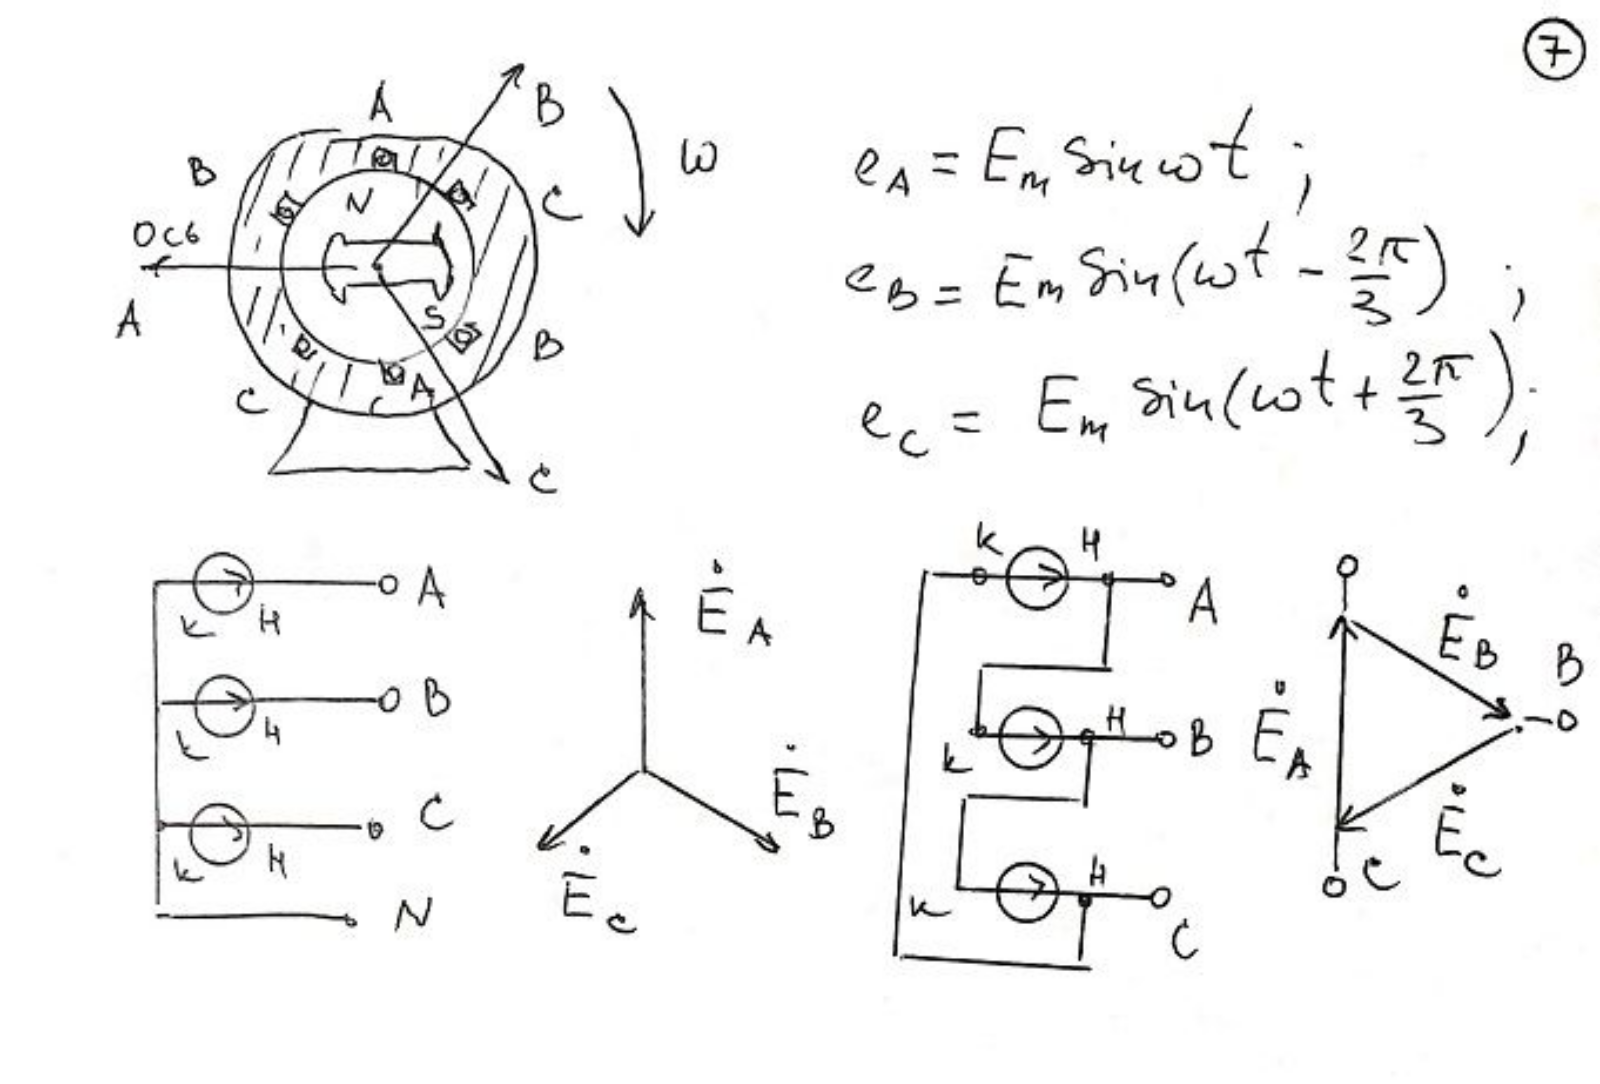 7
A
B
B
C
ω
N
Ось
A
S
B
C
A
C
e_A = E_m sin ωt ;
e_B = E_m sin(ωt - 2π/3) ;
e_C = E_m sin(ωt + 2π/3) ;
К Н A
К Н B
К Н C
N
Ė_A
Ė_B
Ė_C
К Н A
К Н B
К Н C
Ė_B
B
Ė_A
Ė_C
C